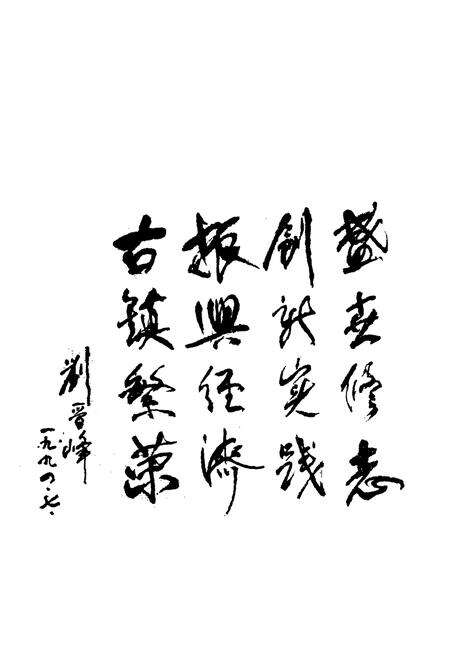 盛世修志
創新实践
振興经濟
古鎮繁荣
劉晋峰
一九九〇.七.